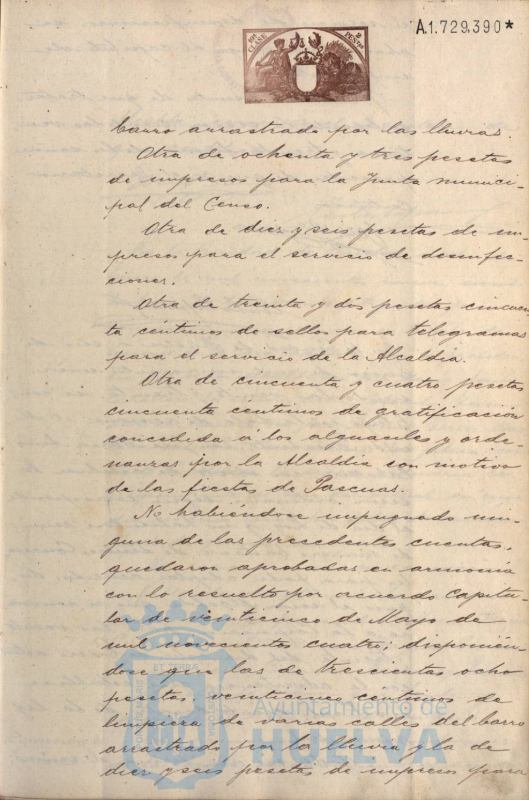 A.1.729,390*
CLASE
PESETAS
barro arrastrado por las lluvias.
Otra de ochenta y tres pesetas
de impresos para la Junta munici
pal del Censo.
Otra de diez y seis pesetas de im
presos para el servicio de desinfec-
ciones.
Otra de treinta y dos pesetas cincuen
ta centimos de sellos para telegramas
para el servicio de la Alcaldia.
Otra de cincuenta y cuatro pesetas
cincuenta céntimos de gratificación
concedida á los alguaciles y orde-
nanzas por la Alcaldia con motivo
de las fiestas de Pascuas.
No habiéndose impugnado nin
guna de las precedentes cuentas,
quedaron aprobadas en armonia
con lo resuelto por acuerdo capitu-
lar de veinticinco de Mayo de
mil novecientos cuatro; disponién-
dose que las de trescientas ocho
pesetas, veinticinco centimos de
limpieza de varias calles del barro
arrastrado por la lluvia y la de
diez y seis pesetas de impresos para
Ayuntamiento de
HUELVA